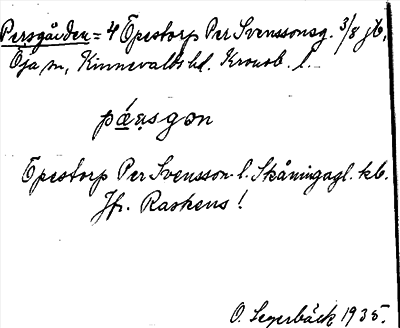 Persgården = 4 Öpestorp Per Svenssonsg. 3/8 jb,
Öja sn, Kinnevalds hd. Kronob. l.
pæ̣rsgon
Öpestorp Per Svensson l. Skåningagl. kb.
Jfr. Raskens!
O. Segerbäck 1935.